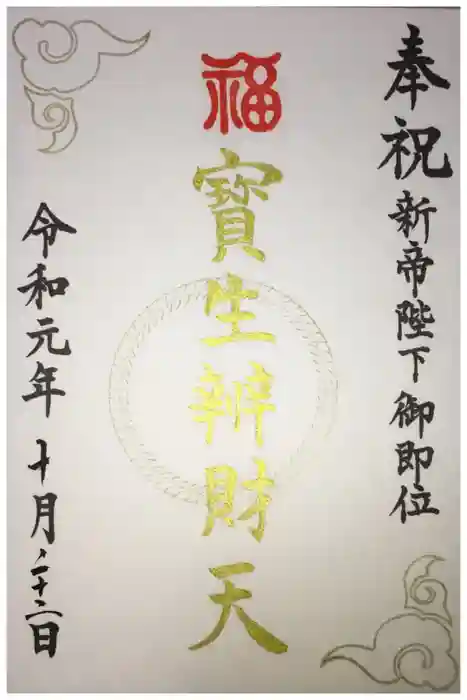 奉祝新帝陛下御即位
福
寶生辨財天
令和元年十月二十二日